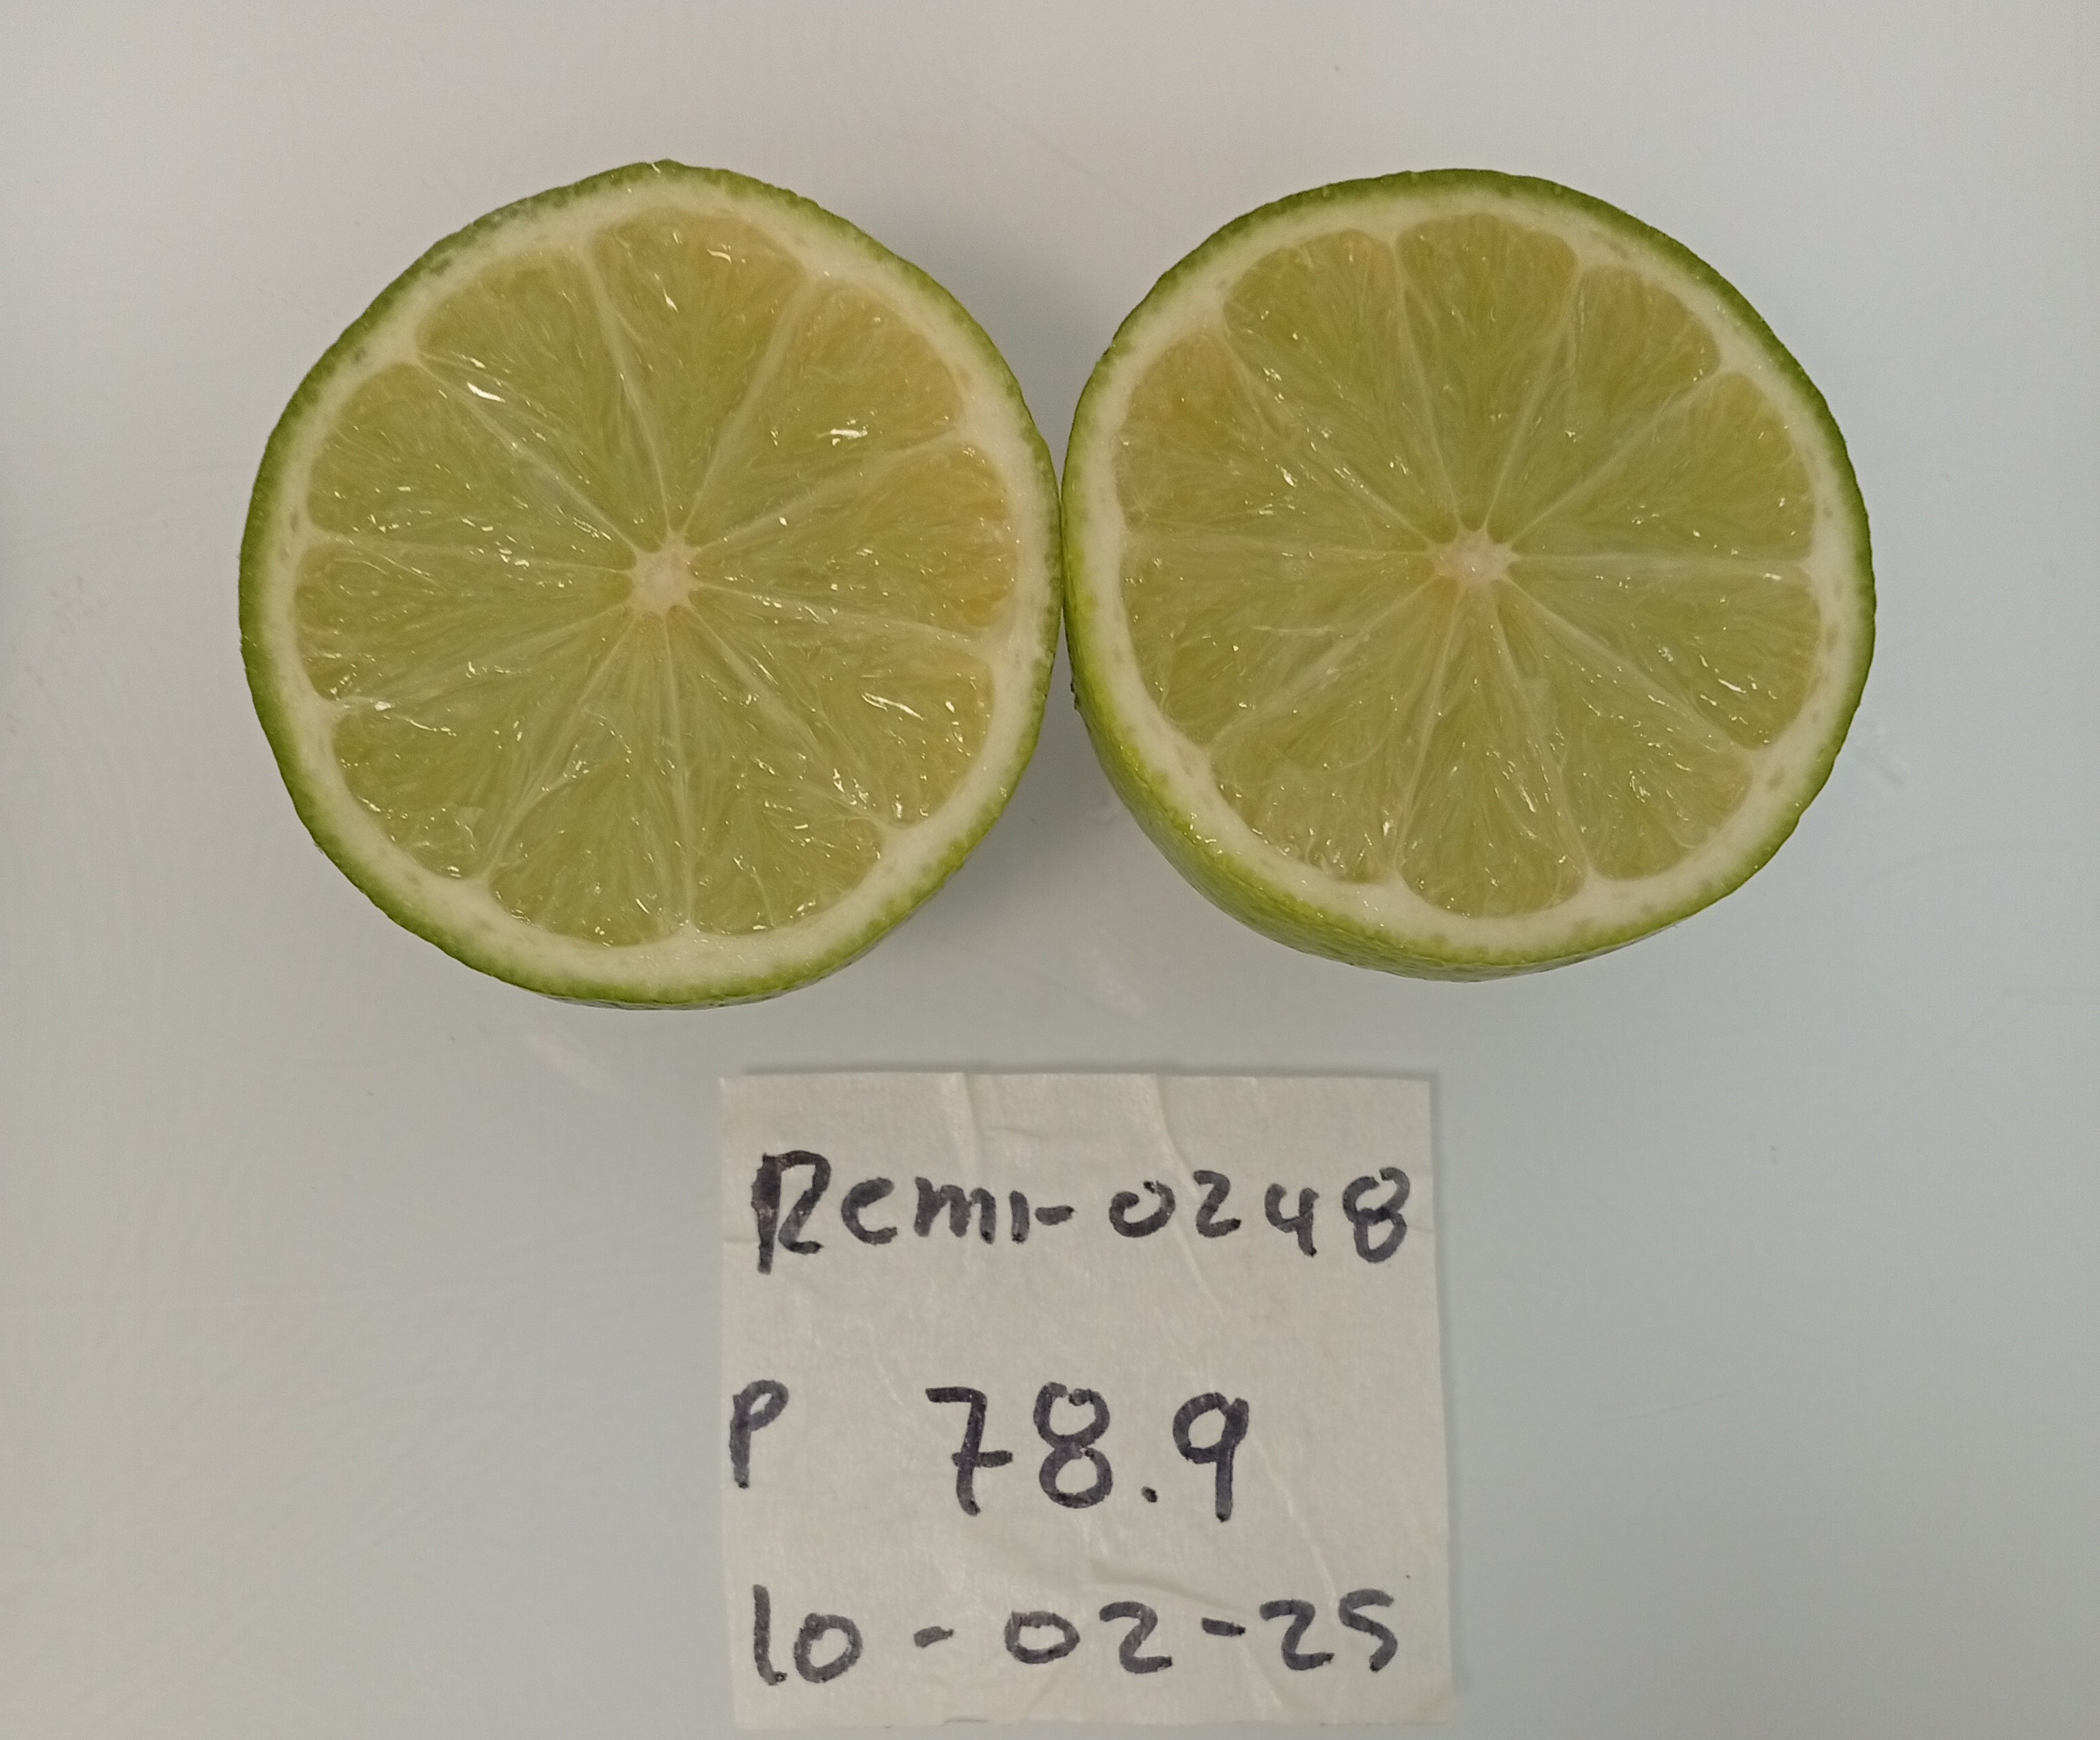 Remi-0248
P 78.9
10-02-25